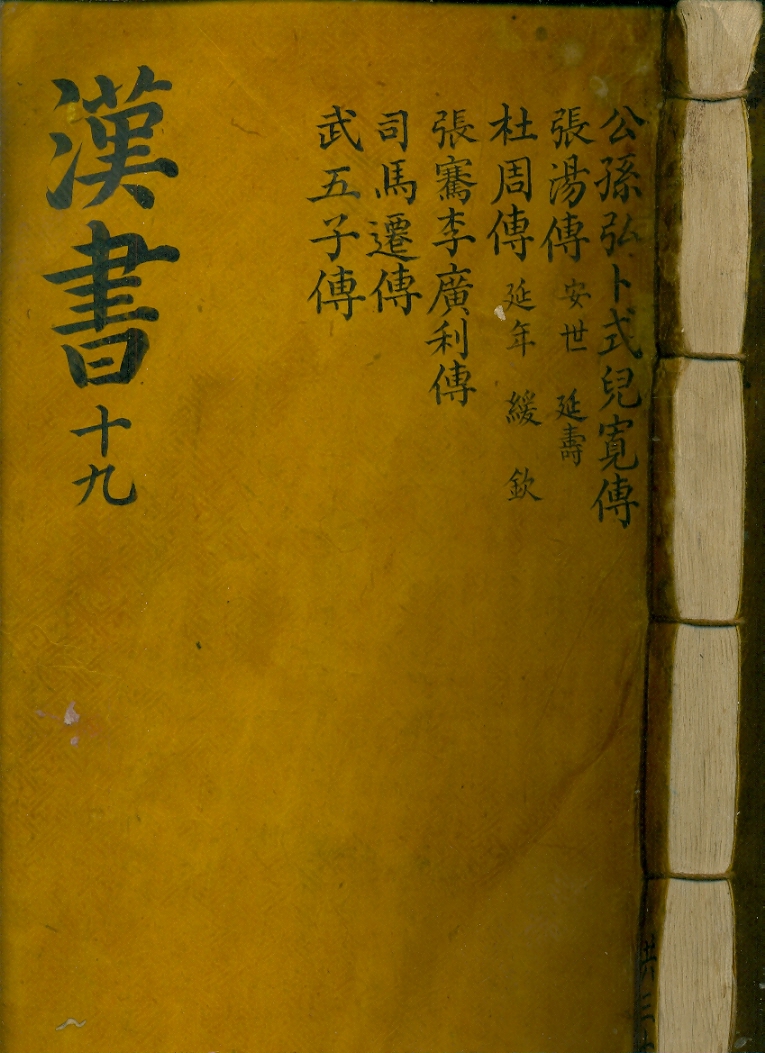 公孫弘卜式兒寬傳
張湯傳 安世 延壽
杜周傳 延年 緩 欽
張騫李廣利傳
司馬遷傳
武五子傳
漢書十九